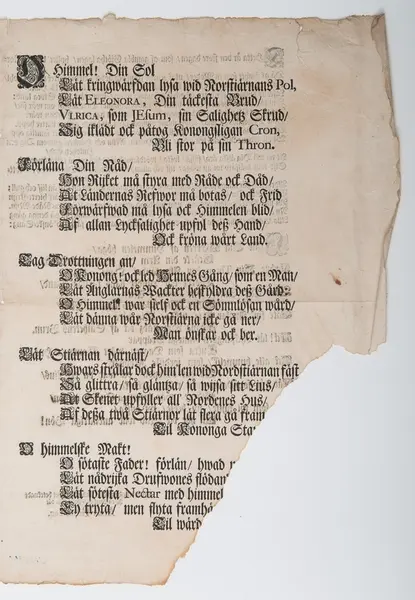 O Himmel! Din Sol
Låt kringwärfdan lysa wid Norstiärnans Pol,
Låt ELEONORA, Din täckesta Brud/
VLRICA, som JEsum, sin Salighetz Skrud/
Sig iklädt ock påtog Konongsligan Cron,
Bli stor på sin Thron.
Förläna Din Nåd/
Hon Rijket må styra med Råde ock Dåd/
At Ländernas Refwor må botas/ ock Frid
Förwärfwad må lysa ock Himmelen blid/
Af allan Lycksalighet upfyl deß Hand/
Ock kröna wårt Land.
Tag Drottningen an/
O Konong! ock led Hennes Gång/ som en Man/
Låt Änglarnas Wackter beskyldra deß Gård:
O Himmel! war sielf ock en Sömnlösan wård/
Låt denna wår Norstiärna icke gå ner/
Man önskar ock ber.
Låt Stiärnan därnäst/
Hwars strålar dock him'len wid Nordstiärnan fäst
Så glittra/ så gläntza/ så wijsa sitt Lius/
At Skenet upfyller all' Nordenes Hus/
Af deßa twå Stiärnor låt flera gå fram
Til Kononga Sta
O himmelske Makt!
O sötaste Fader! förlän/ hwad
Låt nådrijka Drufwones flöda
Låt sötesta Nectar med himmel
Ey tryta/ men flyta framhä
Til wård